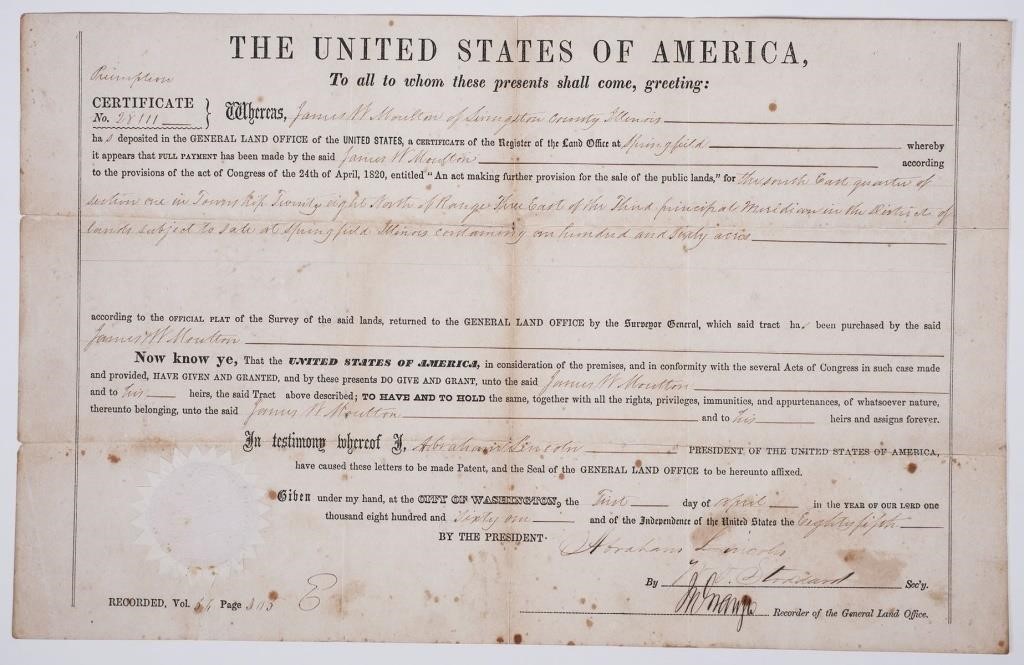 THE UNITED STATES OF AMERICA,
To all to whom these presents shall come, greeting:
Preemption
CERTIFICATE
No. 28111
Whereas, James W Moulton of Livingston County Illinois
has deposited in the GENERAL LAND OFFICE of the UNITED STATES, a CERTIFICATE of the Register of the Land Office at Springfield whereby
it appears that FULL PAYMENT has been made by the said James W Moulton according
to the provisions of the act of Congress of the 24th of April, 1820, entitled "An act making further provision for the sale of the public lands," for the South East quarter of
section one in Township Twenty eight North of Range Five East of the Third principal Meridian in the District of
lands subject to sale at Springfield Illinois containing one hundred and Sixty acres
according to the OFFICIAL PLAT of the Survey of the said lands, returned to the GENERAL LAND OFFICE by the Surveyor General, which said tract has been purchased by the said
James W Moulton
Now know ye, That the UNITED STATES OF AMERICA, in consideration of the premises, and in conformity with the several Acts of Congress in such case made
and provided, HAVE GIVEN AND GRANTED, and by these presents DO GIVE AND GRANT, unto the said James W Moulton
and to his heirs, the said Tract above described; TO HAVE AND TO HOLD the same, together with all the rights, privileges, immunities, and appurtenances, of whatsoever nature,
thereunto belonging, unto the said James W Moulton and to his heirs and assigns forever.
In testimony whereof I, Abraham Lincoln PRESIDENT OF THE UNITED STATES OF AMERICA,
have caused these letters to be made Patent, and the Seal of the GENERAL LAND OFFICE to be hereunto affixed.
Given under my hand, at the CITY OF WASHINGTON, the First day of April in the YEAR OF OUR LORD one
thousand eight hundred and Sixty one and of the Independence of the United States the Eighty fifth
BY THE PRESIDENT: Abraham Lincoln
By W. O. Stoddard Sec'y.
RECORDED, Vol. Page E
Recorder of the General Land Office.